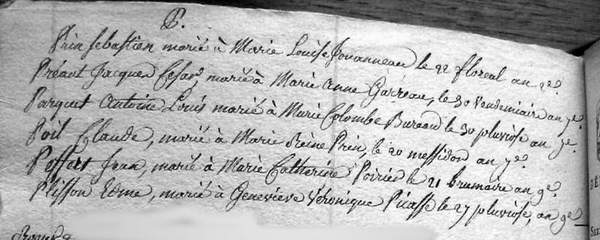 P.
Prin Sebastien marié à Marie Louise Jouanneau le 22 floreal an 9e.
Préaut Jacques Cesar marié à Marie Anne Garreau, le 30 Vendemiaire an 9e.
Parquet Antoine Louis marié à Marie Colombe Bureau le 30 pluviose an 9e.
Poil Claude, marié à Marie Reine Prin, le 20 messidor an 9e.
Poffart Jean, marié à Marie Catherine Poirier le 21 brumaire an 9e.
Plisson Edme, marié à Genevieve Véronique Picasse le 27 pluviose, an 9e